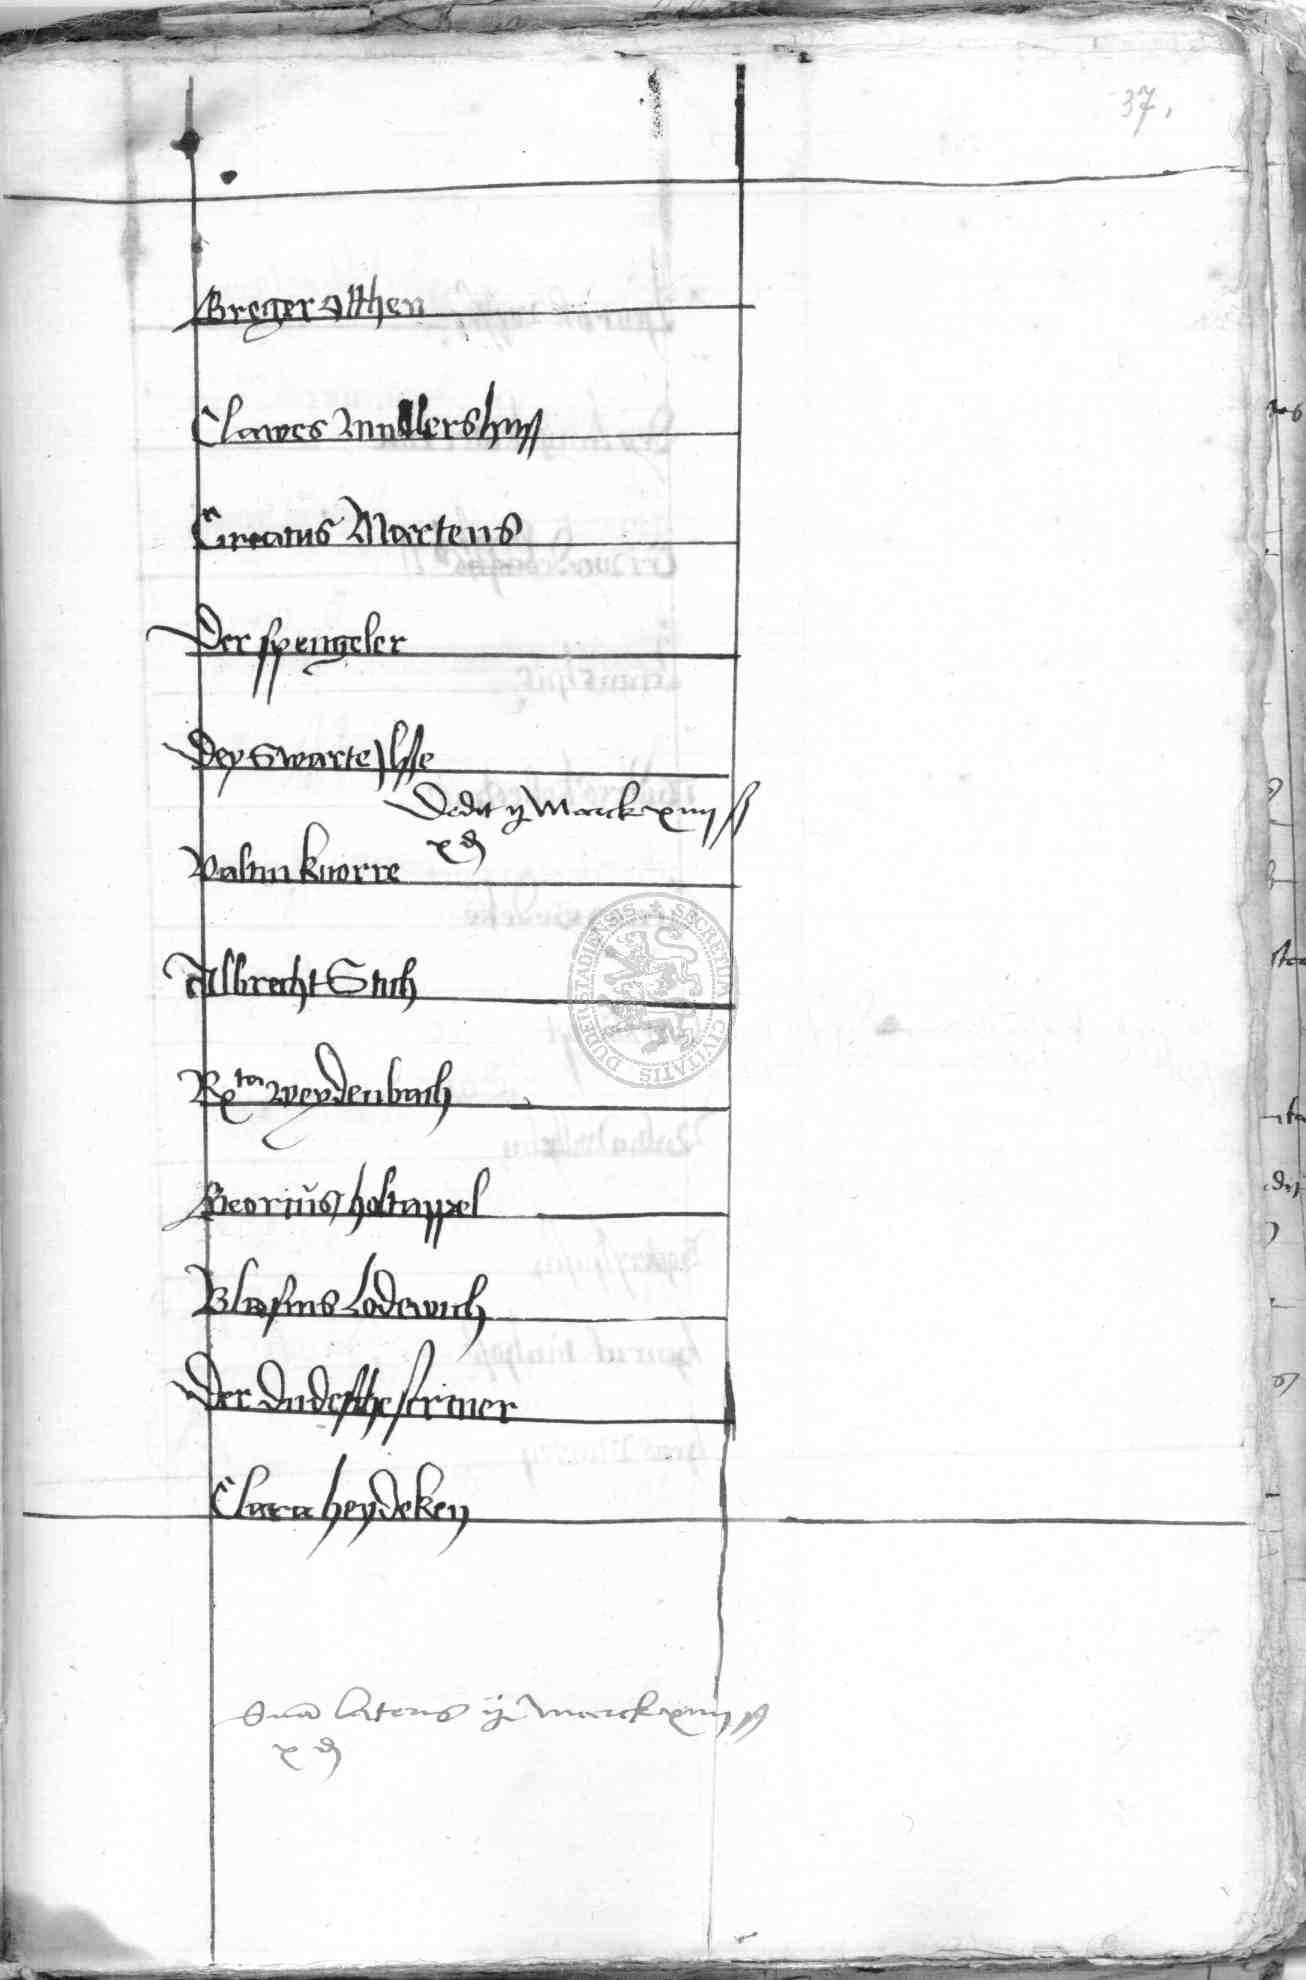 37.
Greger Otthen
Clawes Mullershuß
Ciriacus Martens
Der spengeler
Dey Swarte Ilse
Dedit ij Marck xiiij ß
x d
Valtin knorre
Albrecht Stich
Weydenbach
Georius holtappel
Blasius Lodewich
Der Dudesche scriver
Clara heydeken
Suma lateris ij Marck xiiij ß
x d
SECRETUM CIVITATIS DUDERSTADIENSIS